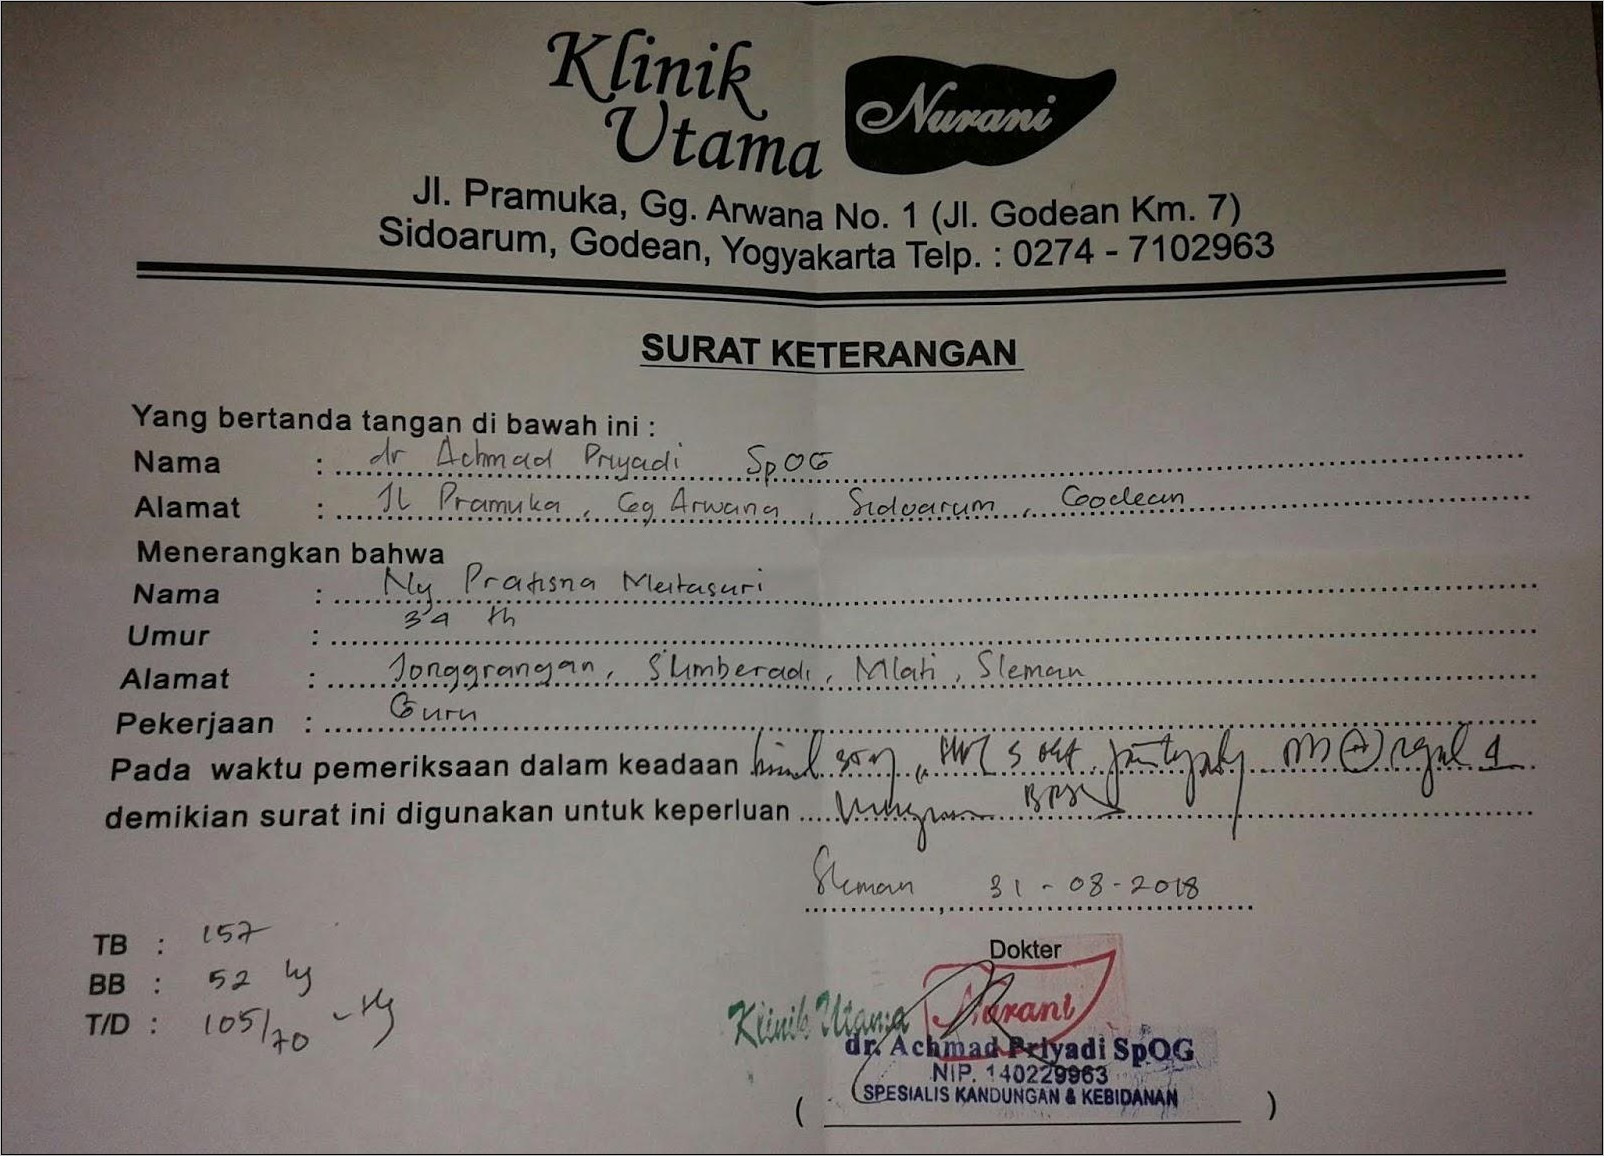 Klinik
Utama
Nurani
Jl. Pramuka, Gg. Arwana No. 1 (Jl. Godean Km. 7)
Sidoarum, Godean, Yogyakarta Telp. : 0274 - 7102963
SURAT KETERANGAN
Yang bertanda tangan di bawah ini :
Nama : dr Achmad Priyadi SpOG
Alamat : Jl Pramuka, Gg Arwana, Sidoarum, Godean
Menerangkan bahwa
Nama : Ny Pratisna Meitasuri
Umur : 34 th
Alamat : Jonggrangan, Sumberadi, Mlati, Sleman
Pekerjaan : Guru
Pada waktu pemeriksaan dalam keadaan
demikian surat ini digunakan untuk keperluan
Sleman, 31-08-2018
TB : 157
BB : 52 kg
T/D : 105/70
Dokter
Klinik Utama Nurani
dr. Achmad Priyadi SpOG
NIP. 140229963
SPESIALIS KANDUNGAN & KEBIDANAN
( )